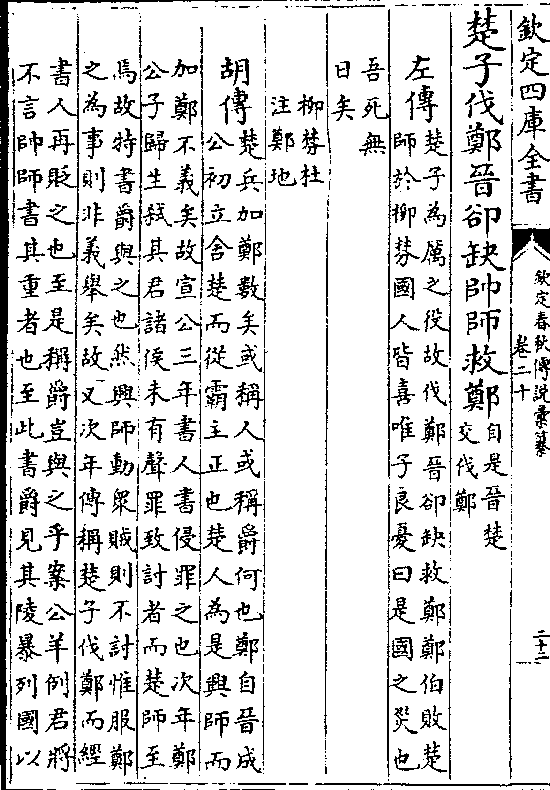 欽定四庫全書
欽定春秋傳説彙纂
卷二十
二十二
楚子伐鄭晉郤缺帥師救鄭
自是晉楚
交伐鄭
左傳
楚子為厲之役故伐鄭晉郤缺救鄭鄭伯敗楚
師於柳棼國人皆喜唯子良憂曰是國之災也
吾死無
日矣
柳棼杜
注鄭地
胡傳
楚兵加鄭數矣或稱人或稱爵何也鄭自晉成
公初立舍楚而從霸主正也楚人為是興師而
加鄭不義矣故宣公三年書人書侵罪之也次年鄭
公子歸生弑其君諸侯未有聲罪致討者而楚師至
焉故特書爵與之也然興師動衆賊則不討惟服鄭
之為事則非義舉矣故又次年傳稱楚子伐鄭而經
書人再貶之也至是稱爵豈與之乎案公羊例君將
不言帥師書其重者也至此書爵見其陵暴列國以